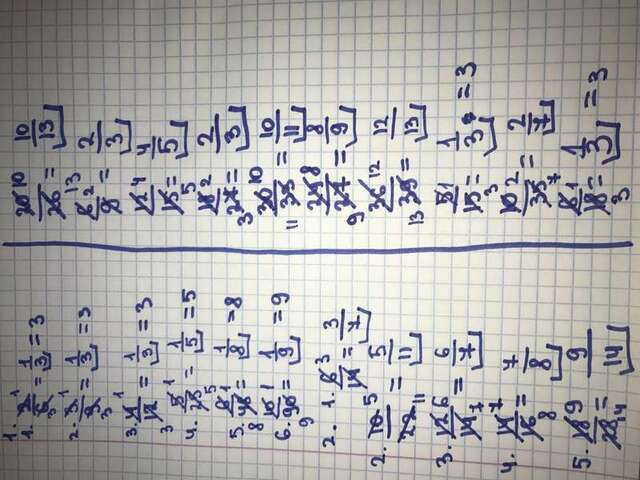 1.
1. 2/6 = 1/3 = 3
2. 3/9 = 1/3 = 3
3. 4/12 = 1/3 = 3
4. 5/25 = 1/5 = 5
5. = 1/8 = 8
6. = 1/9 = 9
2. 1. 6/14 = 3/7
2. 10/22 = 5/11
3. 12/14 = 6/7
4. 14/16 = 7/8
5. 18/28 = 9/14
20/26 = 10/13
6/9 = 2/3
12/15 = 4/5
18/27 = 2/3
30/33 = 10/11
24/27 = 8/9
36/39 = 12/13
5/15 = 1/3 = 3
10/35 = 2/7
6/18 = 1/3 = 3